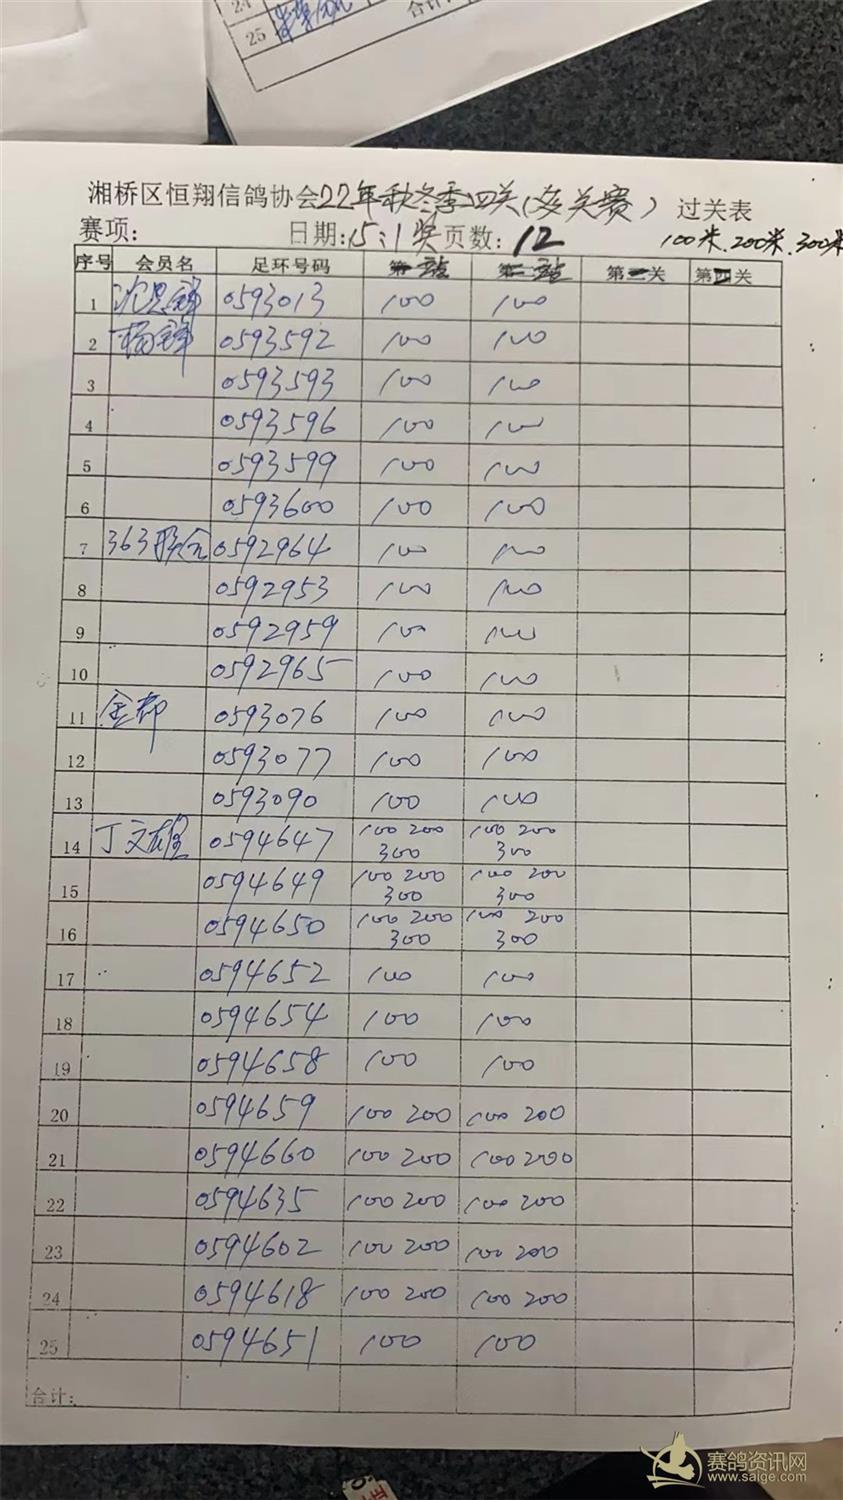 24
25
合计
湘桥区恒翔信鸽协会22年秋冬季四关(多关赛) 过关表
赛项: 日期:15:1奖 页数:12 100米.200米.300米
序号 会员名 足环号码 第一站 第二站 第三关 第四关
1 0593013 100 100
2 杨锋 0593592 100 100
3 0593593 100 100
4 0593596 100 100
5 0593599 100 100
6 0593600 100 100
7 363联合 0592964 100 100
8 0592953 100 100
9 0592959 100 100
10 0592965 100 100
11 金都 0593076 100 100
12 0593077 100 100
13 0593090 100 100
14 丁文雄 0594647 100 200 300 100 200 300
15 0594649 100 200 300 100 200 300
16 0594650 100 200 300 100 200 300
17 0594652 100 100
18 0594654 100 100
19 0594658 100 100
20 0594659 100 200 100 200
21 0594660 100 200 100 200
22 0594635 100 200 100 200
23 0594602 100 200 100 200
24 0594618 100 200 100 200
25 0594651 100 100
合计:
赛鸽资讯网
www.saige.com